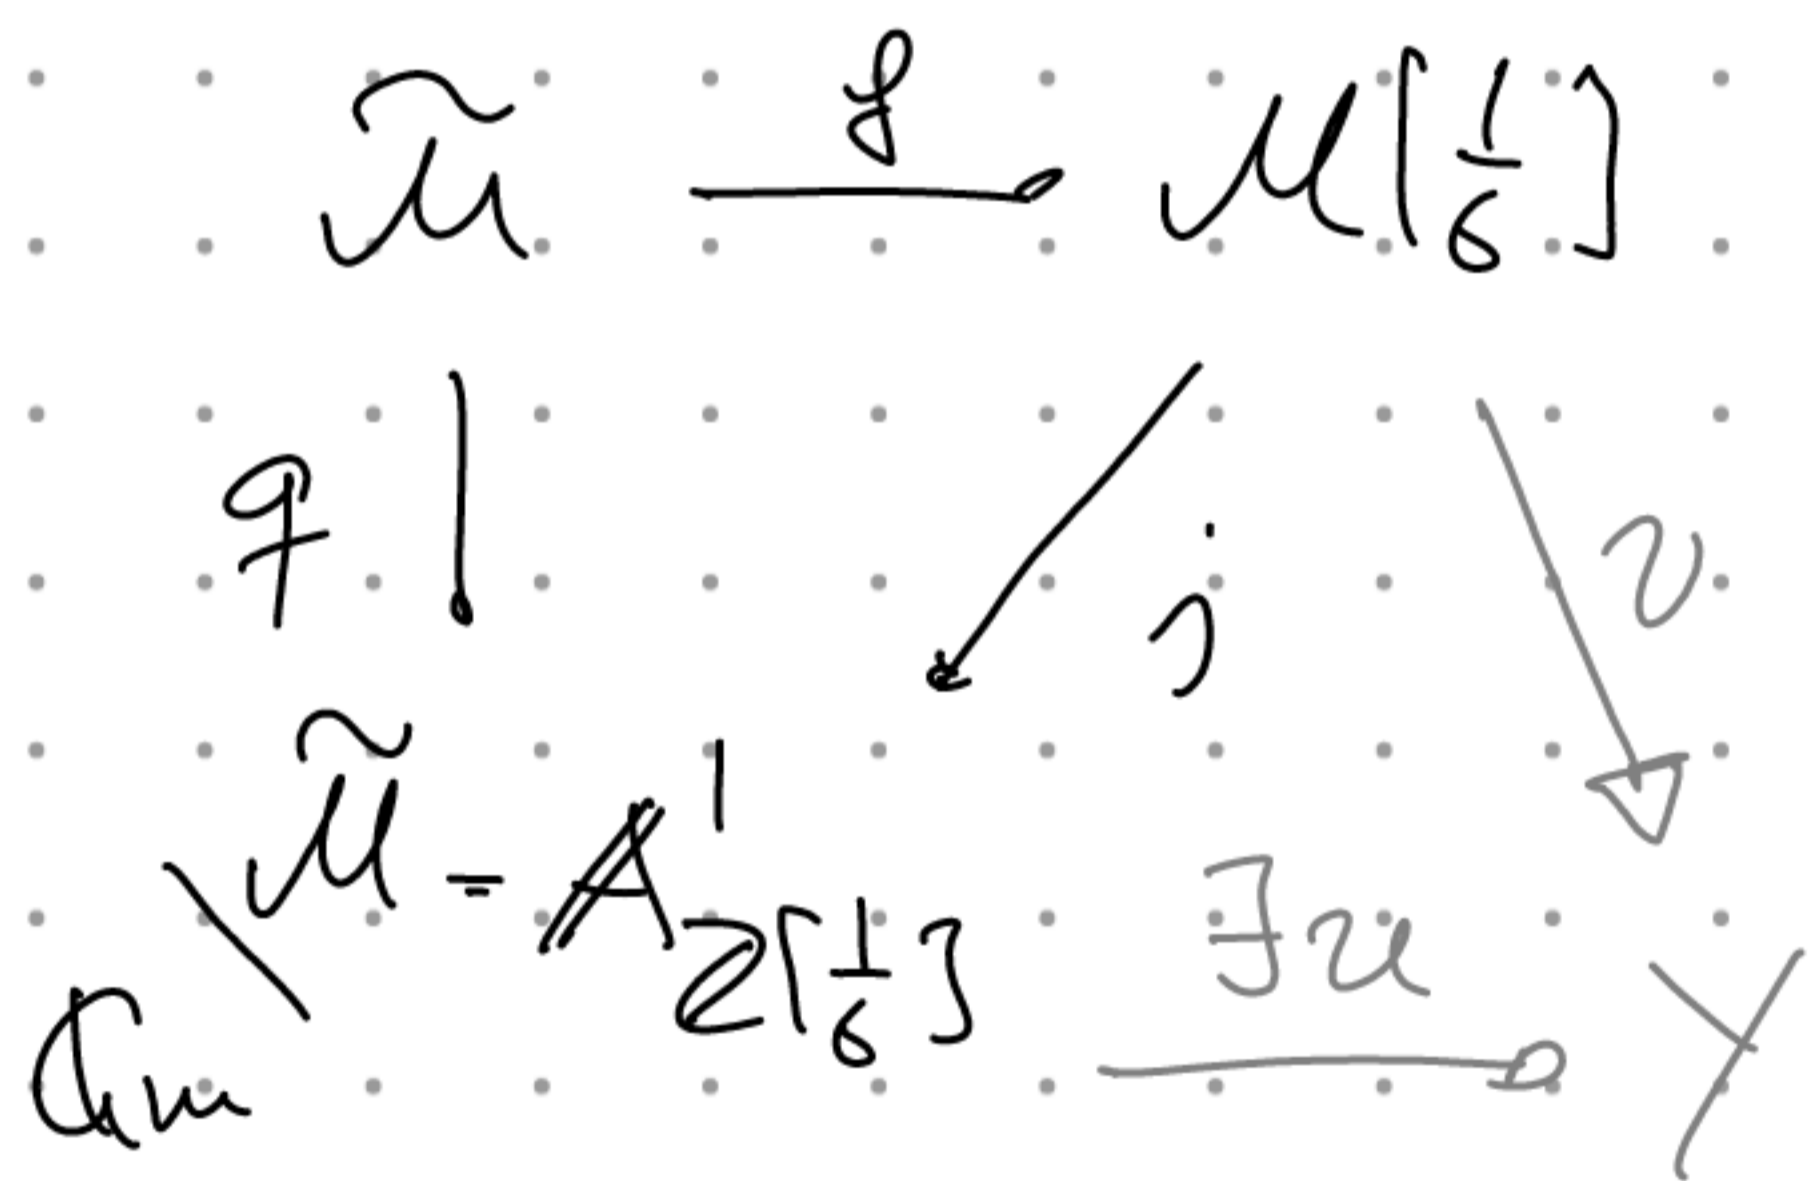 $\widetilde{\mathcal{M}} \xrightarrow{f} \mathcal{M}[\frac{1}{6}]$
q j v
$\mathbb{G}_m \backslash \widetilde{\mathcal{M}} = \mathbb{A}^1_{\mathbb{Z}[\frac{1}{6}]} \xrightarrow{\exists u} Y$